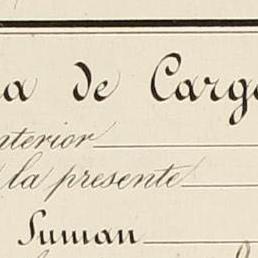 a de Carg
nterior
la presente
Suman